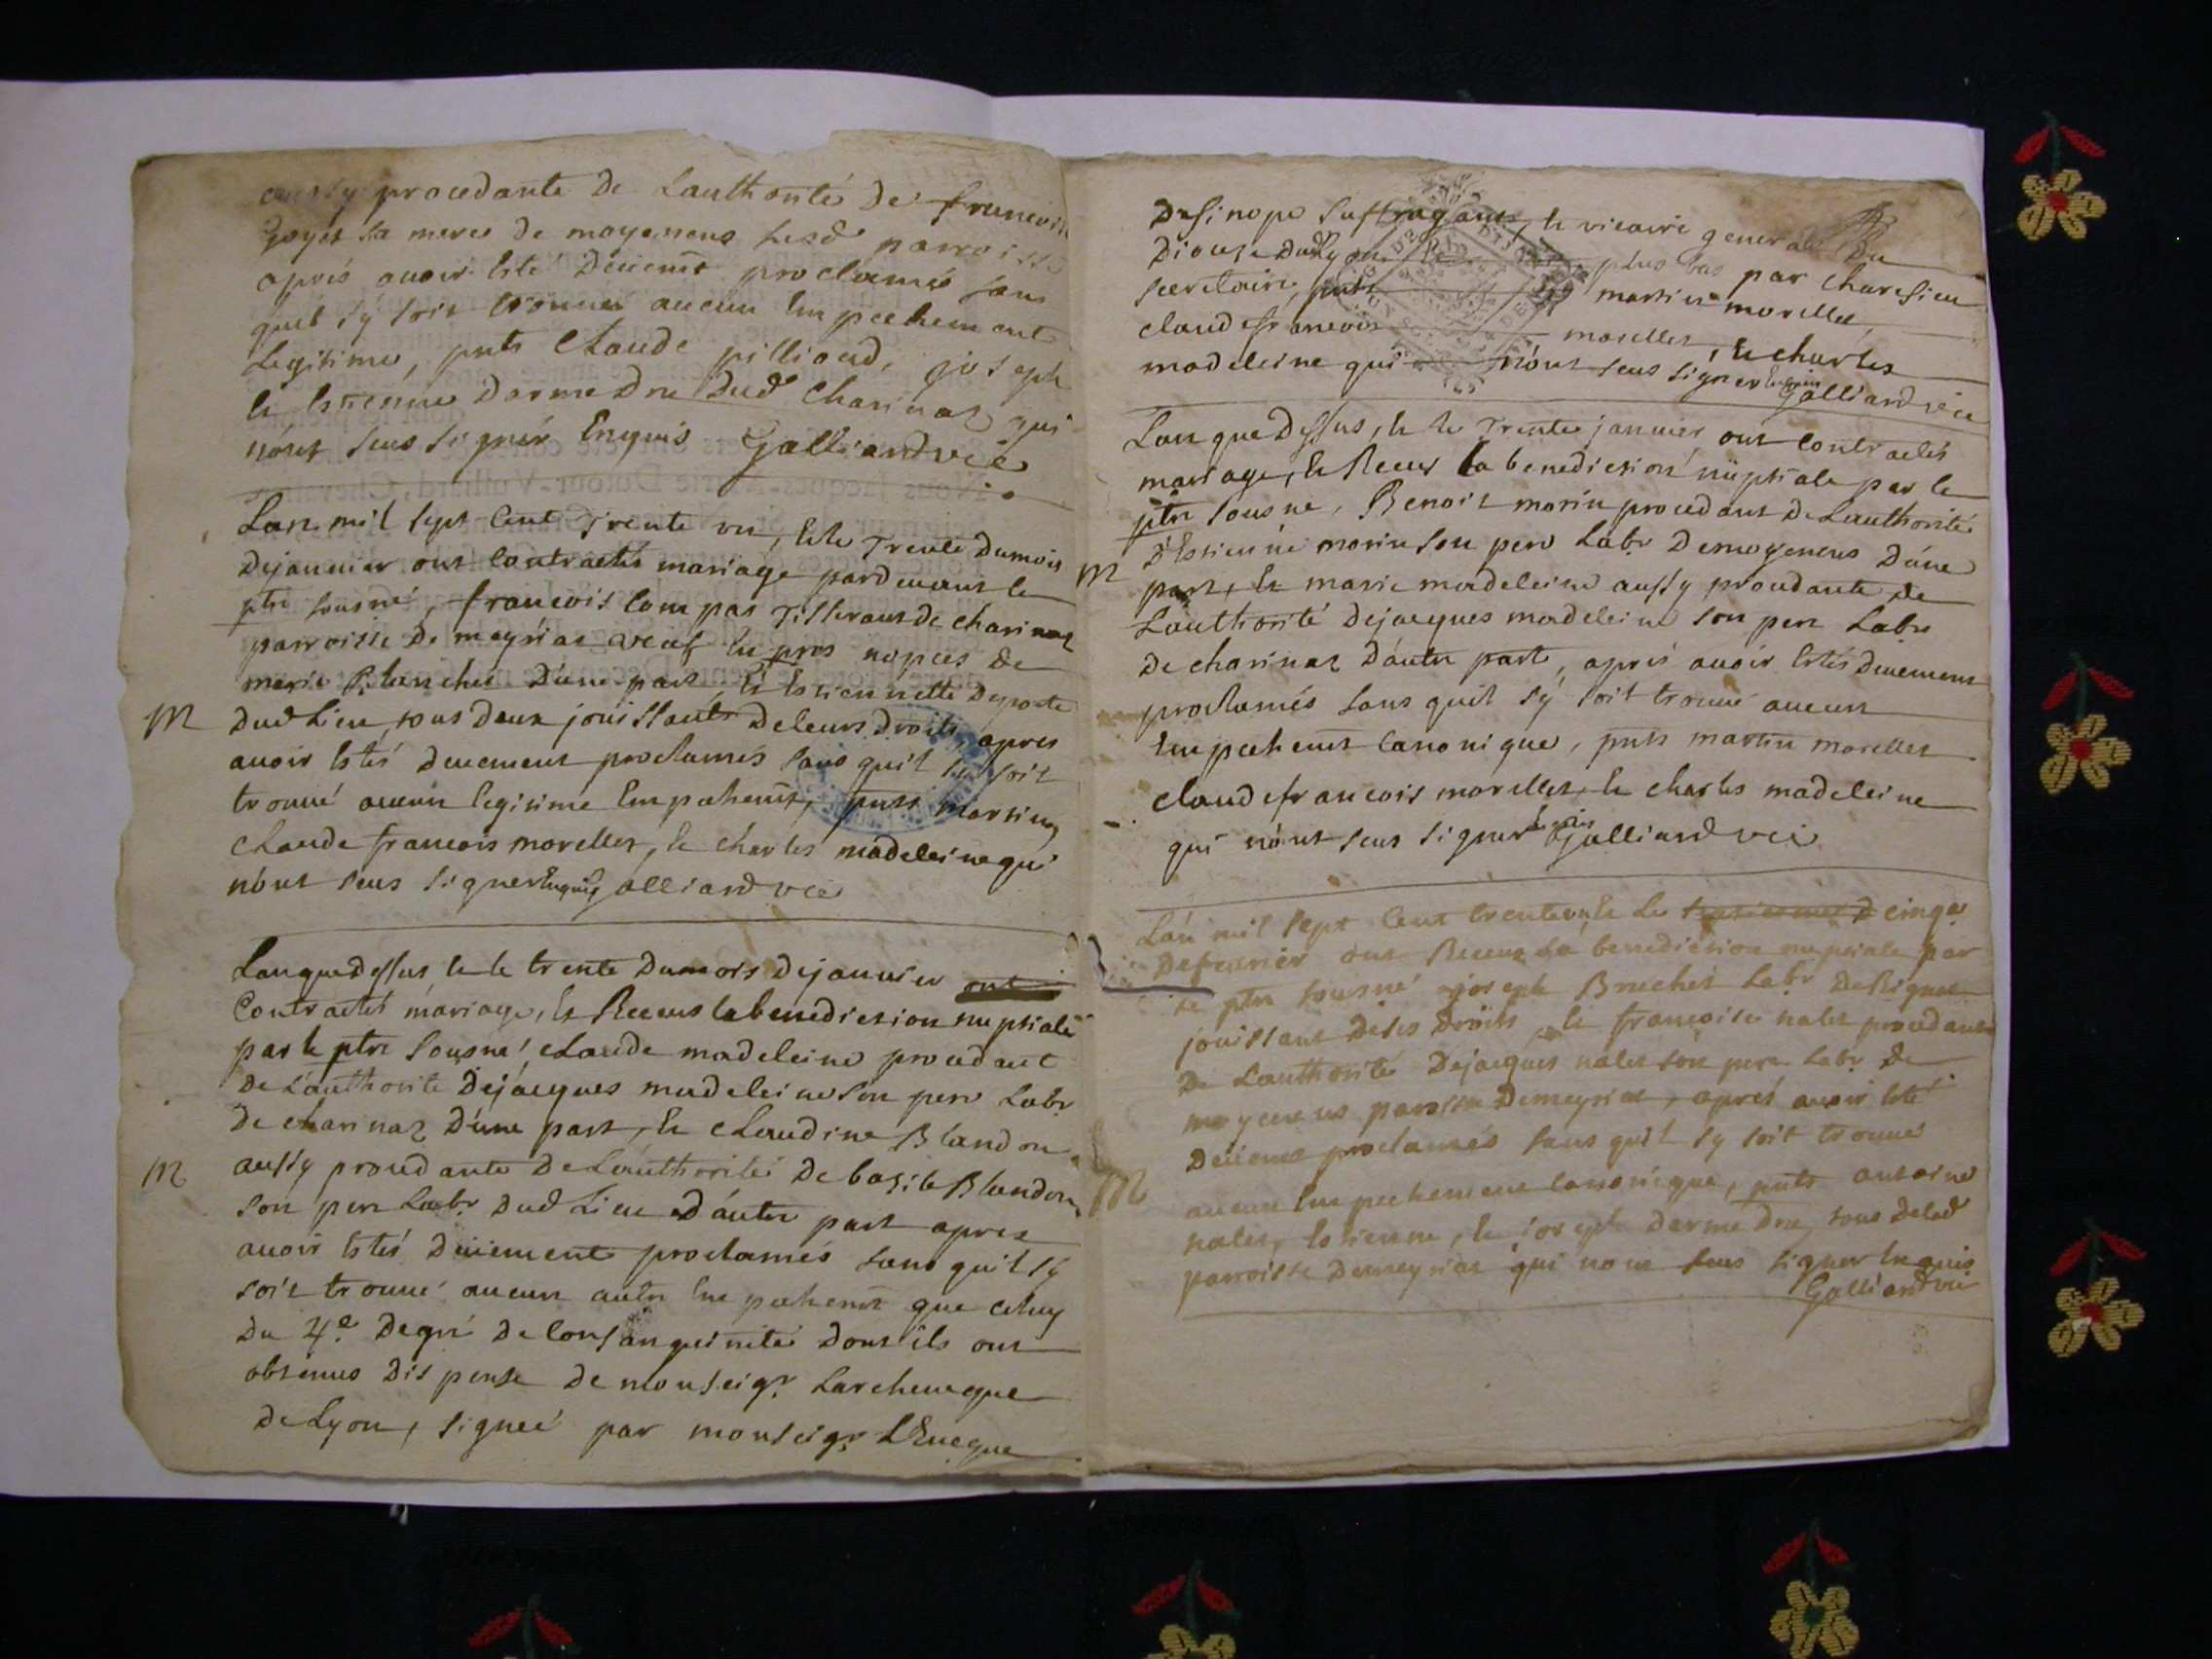 aussy procedante De Lauthorité De francoise
goyet sa mere De moyenens susd parroisse
aprés auoir esté Deuemt proclamés sans
quil sy soit trouué aucun Empechement
Legitime, pnts Claude pilliaud, joseph
et Estienne Darmedru Dud Charinaz qui
nónt sceus signér Enquis Galliard vic
Lan mil sept Cent Trente un, et le Trente Dumois
Dejanuier ont Contractés mariage pardeuant le
ptre sousné, francois Compas Tisserant de charinaz
parroisse De meyriat veuf En pres nopces De
marie Blanchet D'une part, et Estiennette Deporte
M
Dud Lieu, tous Deux jouissants De leurs Droits, apres
auoir Estés Deuement proclamés sans quil sy soit
trouué aucun legitime Empechemt, pnts martin,
Claude francois morellet, et charles madeleine qui
nónt sceus signer Enquis Galliard vic
Lan que dessus et le trente Dumois Dejanuier ont
Contractés mariage, et Receus la benediction nuptiale
par le ptre Sousné Claude madeleine procedant
De Lauthorité Dejacques madeleine son pere Labr
De charinaz D'une part, et Claudine Blandon
M
aussy procedante De Lauthorité De basile Blandon
son pere Labr Dud Lieu D'autre part apres
auoir Estés Deüement proclamés sans quil sy
soit trouué aucun autre Empechemt que celuy
Du 4e. Degré De Consanguinité Dont ils ont
obtenus Dispense De Monseigr. Larcheueque
De Lyon, signeé par monseigr. LEueque
De Sinope Suffragant, et vicaire general Du
Diocese Dud Lyon plus bas par charesieu
secretaire, pnts martin morellet,
Claude francois morellet, et charles
madeleine qui nónt sceus signer Enquis Galliard vic
Lan que Dessus, et le Trente januier ont Contractés
mariage, et Receus La benediction nüptiale par le
ptre sousne, Benoit morin procedant De Lauthorité
D'Estienne morin son pere Labr Demoyenens D'une
M
part, et marie madeleine aussy procedante de
Lauthorité Dejacques madeleine son pere Labr
De charinaz D'autre part, aprés auoir Estés Deuement
proclamés sans quil sy soit trouué aucun
Empechemt Canonique, pnts martin morellet
Claude francois morellet, et charles madeleine
qui nónt sceus signer Enquis Galliard vic
Lán mil Sept Cent trente un, et Le cinq
Defeurier ont Receus La benediction nuptiale par
le ptre sousné joseph Brochet Labr De Rignat
jouissant Deses Droits, et francoise nalet procedante
De Lauthorité Dejacques nalet son pere Labr De
moyenens paroisse Demeyriat, aprés auoir Esté
Deüemt proclamés sans quil sy soit trouué
M
aucun Empechement Canonique, pnts antoine
nalet, Estienne, et joseph Darmedru, tous Delad
parroisse Demeyriat qui nont sceus signer Enquis
Galliard vic